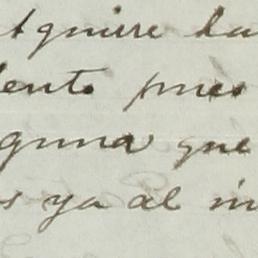 quiere la
ento pues
guna que
s ya al in